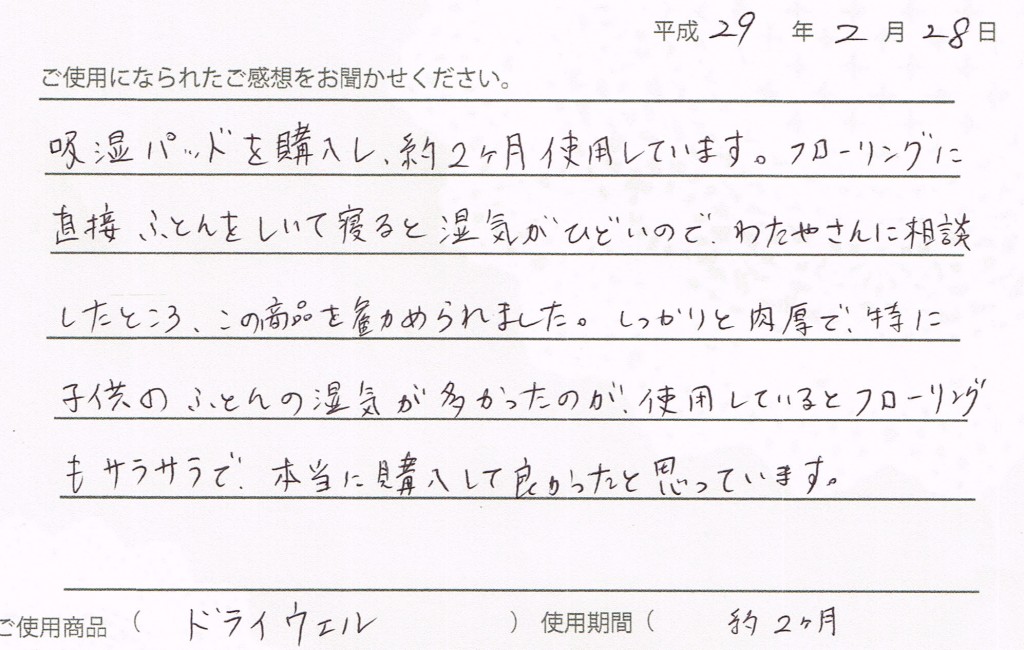 平成 29 年 2 月 28 日
ご使用になられたご感想をお聞かせください。
吸湿パッドを購入し、約2ヶ月使用しています。フローリングに
直接ふとんをしいて寝ると湿気がひどいので、わたやさんに相談
したところ、この商品を勧められました。しっかりと肉厚で、特に
子供のふとんの湿気が多かったのが、使用しているとフローリング
もサラサラで、本当に購入して良かったと思っています。
ご使用商品 ( ドライウェル ) 使用期間 ( 約2ヶ月